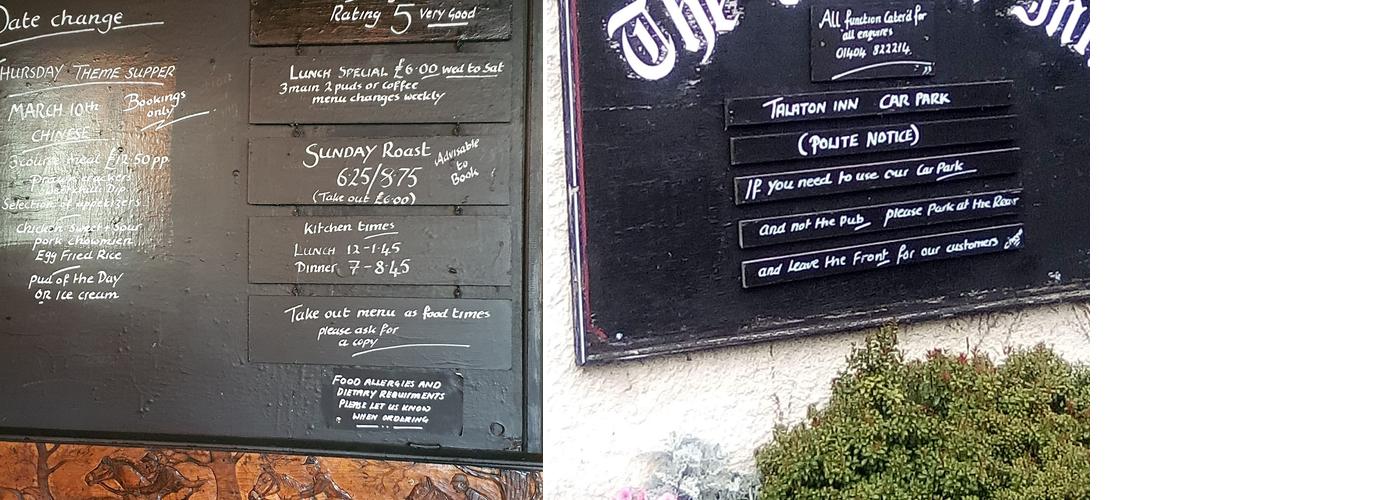 Date change
THURSDAY THEME SUPPER
MARCH 10th Bookings only
CHINESE
3 course meal £12.50pp
Prawn crackers
Dip
Selection of appetizers
Chicken Sweet + Sour
pork chowmien
Egg Fried Rice
pud of the Day
OR Ice cream
Rating 5 Very Good
LUNCH SPECIAL £6.00 wed to Sat
3 main 2 puds or coffee
menu changes weekly
SUNDAY ROAST
6.25/8.75
(Take out £6.00)
Advisable
to
Book
Kitchen times
LUNCH 12-1.45
Dinner 7-8.45
Take out menu as food times
please ask for
a copy
FOOD ALLERGIES AND
DIETARY REQUIRMENTS
PLEASE LET US KNOW
WHEN ORDERING
The Inn
All function Cater'd for
all enquires
01404 822214
TALATON INN CAR PARK
(POLITE NOTICE)
If you need to use our Car Park
and not the Pub please Park at the Rear
and leave the Front for our customers